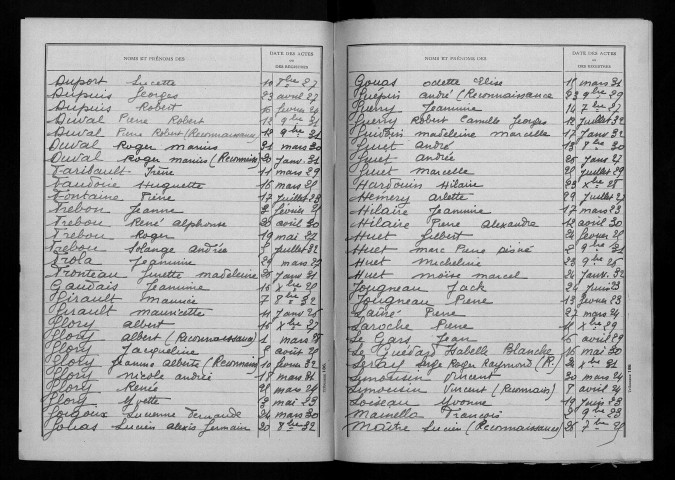 NOMS ET PRÉNOMS DES
DATE DES ACTES
OU
DES REGISTRES
Duport Lucette 10 7bre 27
Dupuis Georges 23 avril 27
Dupuis Robert 16 février 24
Duval Pierre Robert 12 9bre 31
Duval Pierre Robert (Reconnaissance) 12 9bre 31
Duval Roger marius 21 mars 30
Duval Roger marius (Reconnaiss 20 Janv. 31
Faribault Irène 11 mars 29
Faudoire Huguette 15 mars 28
Fontaine 17 Juillet 23
Frebou Jeanne 2 février
Frebou René alphonse 20 avril 30
Frebou Roger 19 mai 27
Frebou Solange andrée Juillet 32
Frola Jeannine 29 mars 27
Fronteau Ginette madeleine 26 Janv 31
Gaudais Jeannine 16 Xbre 28
Girault maurice 7 8bre 32
Girault mauricette 11 Janv 26
Glory albert 16 Xbre 27
Glory albert (Reconnaissance) 1 mars 28
Glory Jacqueline 2 août 28
Glory Jeanne alberte (Reconnaiss 10 février 32
Glory nicole andrée 18 mars 31
Glory Renée 28 mars 24
Glory Yvette 3 mai 23
Gorgoux Lucienne Fernande 24 mars 30
Gouas Lucien alexis Germain 20 8bre 32
NOMS ET PRÉNOMS DES
DATE DES ACTES
OU
DES REGISTRES
Gouas odette Elise 15 mars 31
Guépin andré (Reconnaissance 23 9bre 29
Guerry Jeannine 14 7bre 27
Guerry Robert Camille Georges 12 Juillet 32
Guidoin madeleine marcelle 17 Janv 32
Guiet andré 13 8bre 30
Guiet andrée 25 Janv 27
Guiet marcelle 28 Juillet 29
Hardouin Hilaire 23 Xbre 25
Hemery arlette 29 Juillet 27
Hilaire Jeannine 17 mars 23
Hilaire Pierre alexandre 12 avril 30
Huet Gilbert 24 février 28
Huet marc Pierre 2 9bre 31
Huet micheline 23 9bre 25
Huet moïse marcel 24 Janv. 32
Jougneau Jack 24 Juin 23
Jougneau Pierre 13 février 23
Lainé Pierre 27 mars 24
Laroche Pierre 11 Xbre 29
Le Gars Jean 16 avril 29
Le Isabelle Blanche 16 mai 30
Serge Roger Raymond (R.) 26 Xbre 31
Limousin Vincent 30 mars 24
Limousin Vincent (Reconnaiss) 7 avril 24
Loiseau Yvonne 19 Juin 23
Marcella Francois 21 9bre 23
Maître Lucien (Reconnaissance) 25 7bre 25